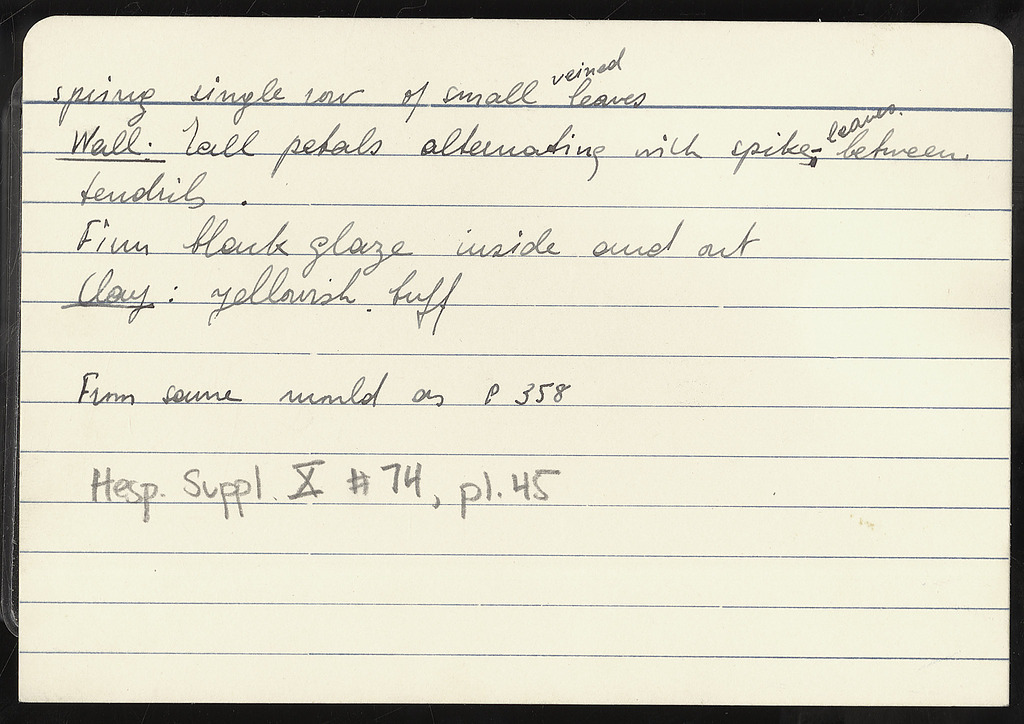 spring single row of small veined leaves
Wall: Tall petals alternating with spike leaves. between
tendrils.
Firm black glaze inside and out
Clay: yellowish buff
From same mould as P 358
Hesp. Suppl. X # 74, pl. 45